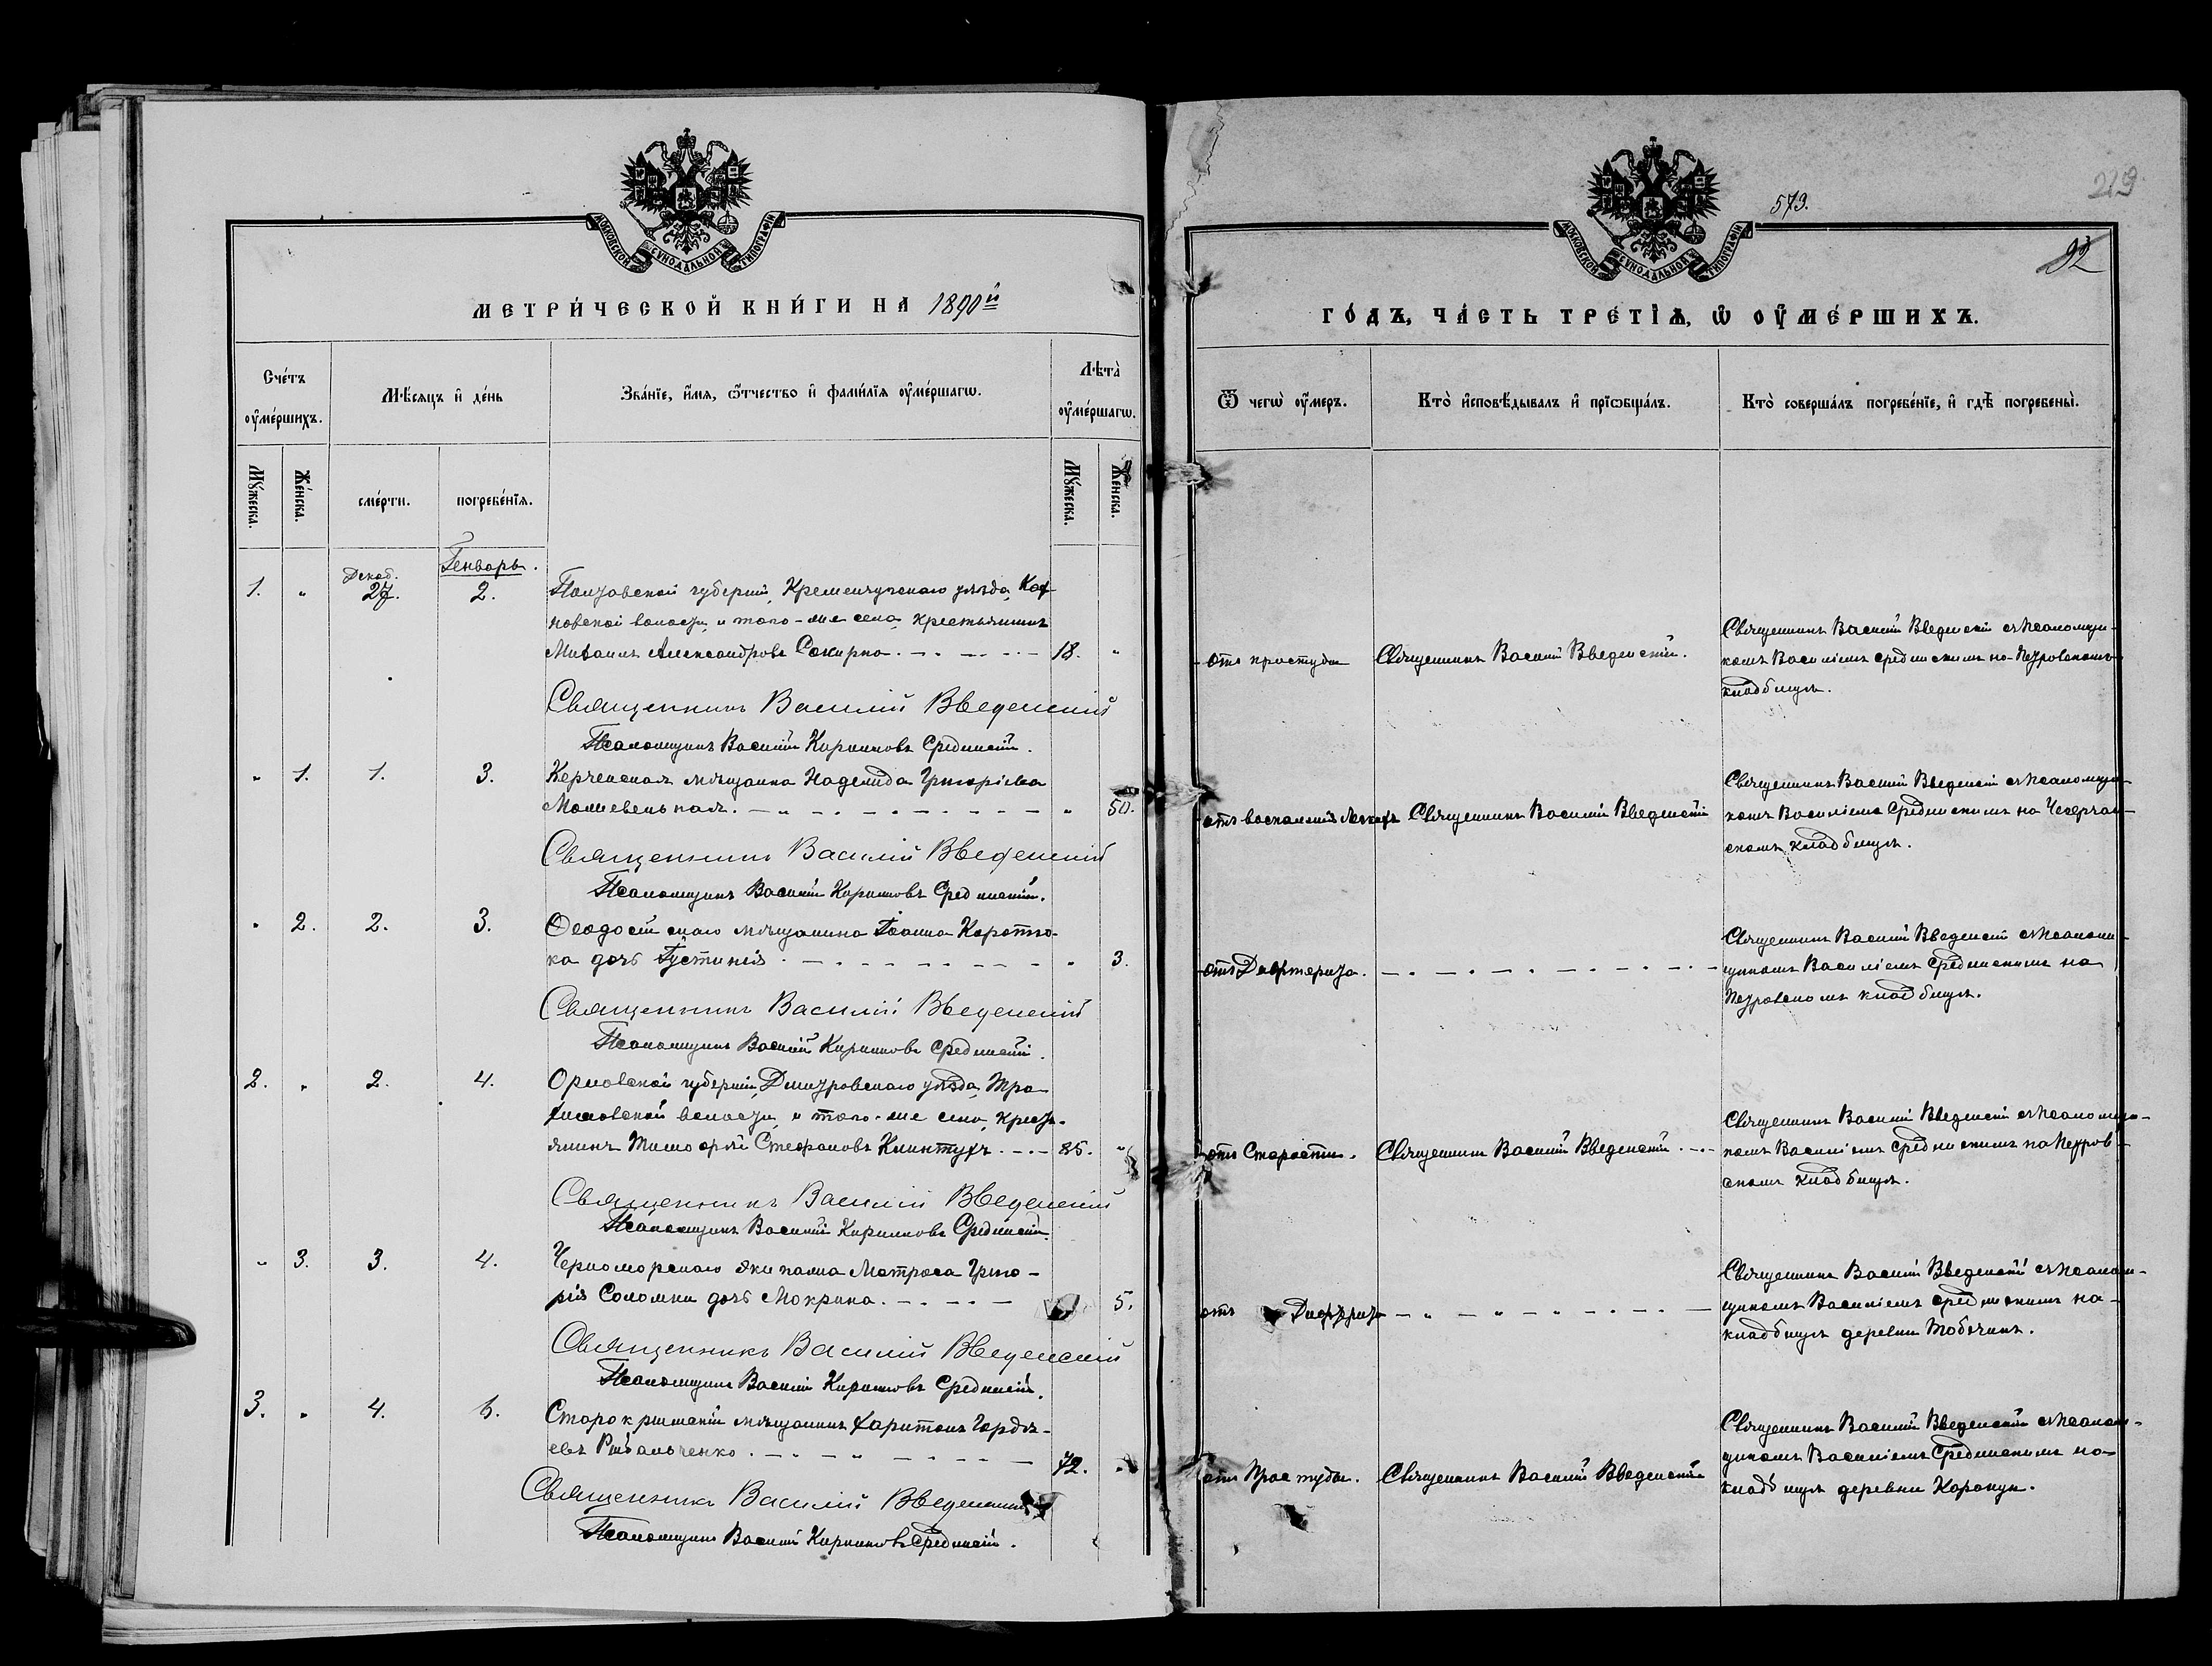 МОСКОВСКОЙ СѴНОДАЛЬНОЙ ТИПОГРАФІИ
МЕТРИ́ЧЕСКОЙ КНИ́ГИ НА 1890й
Сче́тъ ᲂу҆ме́ршихъ.
Мѣ́сяцъ и҆ де́нь
Зва́нїе, и҆́мѧ, ѻ҆́тчество и҆ фами́лїѧ ᲂу҆ме́ршагѡ.
Лѣта̀ ᲂу҆ме́ршагѡ.
Мꙋ́жеска.
Же́нска.
сме́рти.
погребе́нїѧ.
Мꙋ́жеска.
Же́нска.
Генварь.
1. " Декаб. 27. 2. Полтавской губерніи, Кременчугскаго уѣзда,
новской волости, и того-же села, крестьянинъ
Михаилъ Александровъ Сокирко. 18. "
Священникъ Василій Введенскій
Псаломщикъ Василій Кирилловъ Срединскій.
" 1. 1. 3. Керченская мѣщанка Надежда Григоріева
50.
Священникъ Василій Введенскій
Псаломщикъ Василій Кирилловъ Срединскій.
" 2. 2. 3. Ѳеодосійскаго мѣщанина Іоанна Коротко-
ка дочь Іустинія. " 3.
Священникъ Василій Введенскій
Псаломщикъ Василій Кирилловъ Срединскій.
2. " 2. 4. Орловской губерніи, Дмитровскаго уѣзда,
волости, и того-же села, кресть-
янинъ Тимофей Стефановъ Клинтухъ. 85. "
Священникъ Василій Введенскій
Псаломщикъ Василій Кирилловъ Срединскій.
" 3. 3. 4. Черноморскаго экипажа Матроса Григо-
рія Соломки дочь Мокрина. 5.
Священникъ Василій Введенскій
Псаломщикъ Василій Кирилловъ Срединскій.
3. " 4. 6. Старокрымскій мѣщанинъ Харитонъ Гордѣ-
евъ Рыбальченко. 72. "
Священникъ Василій Введенскій
Псаломщикъ Василій Кирилловъ Срединскій.
219
573.
92
МОСКОВСКОЙ СѴНОДАЛЬНОЙ ТИПОГРАФІИ
ГО́ДЪ, ЧА́СТЬ ТРЕ́ТІѦ, Ѡ҆ ОУ҆МЕ́РШИХЪ.
Ѿ чегѡ̀ ᲂу҆́меръ.
Кто̀ и҆сповѣ́дывалъ и҆ прїѡбща́лъ.
Кто̀ соверша́лъ погребе́нїе, и҆ гдѣ̀ погребены̀.
отъ простуды Священникъ Василій Введенскій.
Священникъ Василій Введенскій съ псаломщи-
комъ Василіемъ Срединскимъ на Петровскомъ
кладбищѣ.
отъ воспаленія легкихъ Священникъ Василій Введенскій
Священникъ Василій Введенскій съ псаломщи-
комъ Василіемъ Срединскимъ на
скомъ кладбищѣ.
отъ Дифтерита.
Священникъ Василій Введенскій съ псалом-
щикомъ Василіемъ Срединскимъ на
Петровскомъ кладбищѣ.
отъ Старости. Священникъ Василій Введенскій.
Священникъ Василій Введенскій съ псаломщи-
комъ Василіемъ Срединскимъ на Петров-
скомъ кладбищѣ.
отъ Дифтерита
Священникъ Василій Введенскій съ псалом-
щикомъ Василіемъ Срединскимъ на
кладбищѣ деревни Тобечикъ.
отъ Простуды. Священникъ Василій Введенскій
Священникъ Василій Введенскій съ псалом-
щикомъ Василіемъ Срединскимъ на
кладбищѣ деревни Коронкун.